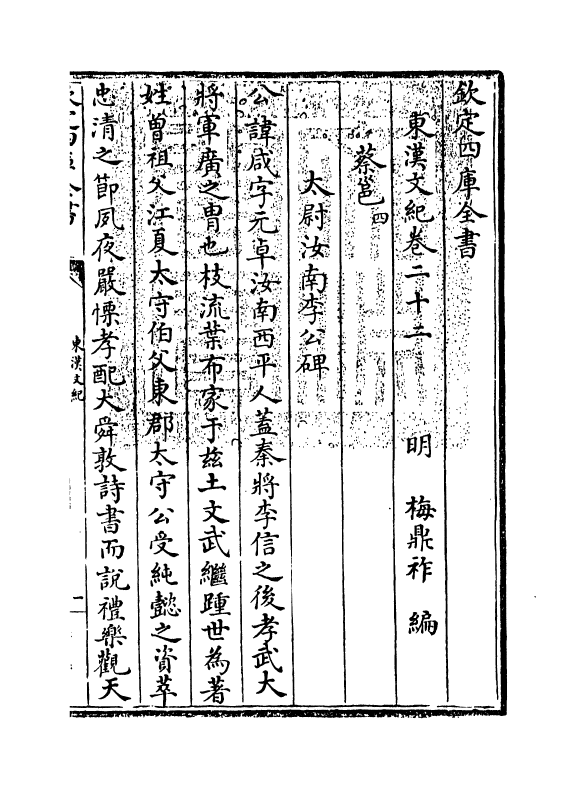 欽定四庫全書
東漢文紀卷二十二 明 梅鼎祚 編
蔡邕四
太尉汝南李公碑
公諱咸字元卓汝南西平人蓋秦將李信之後孝武大
將軍廣之胄也枝流葉布家于兹土文武繼踵世為著
姓曾祖父江夏太守伯父東郡太守公受純懿之資萃
忠清之節夙夜嚴慄孝配大舜敦詩書而說禮樂觀天
東漢文紀